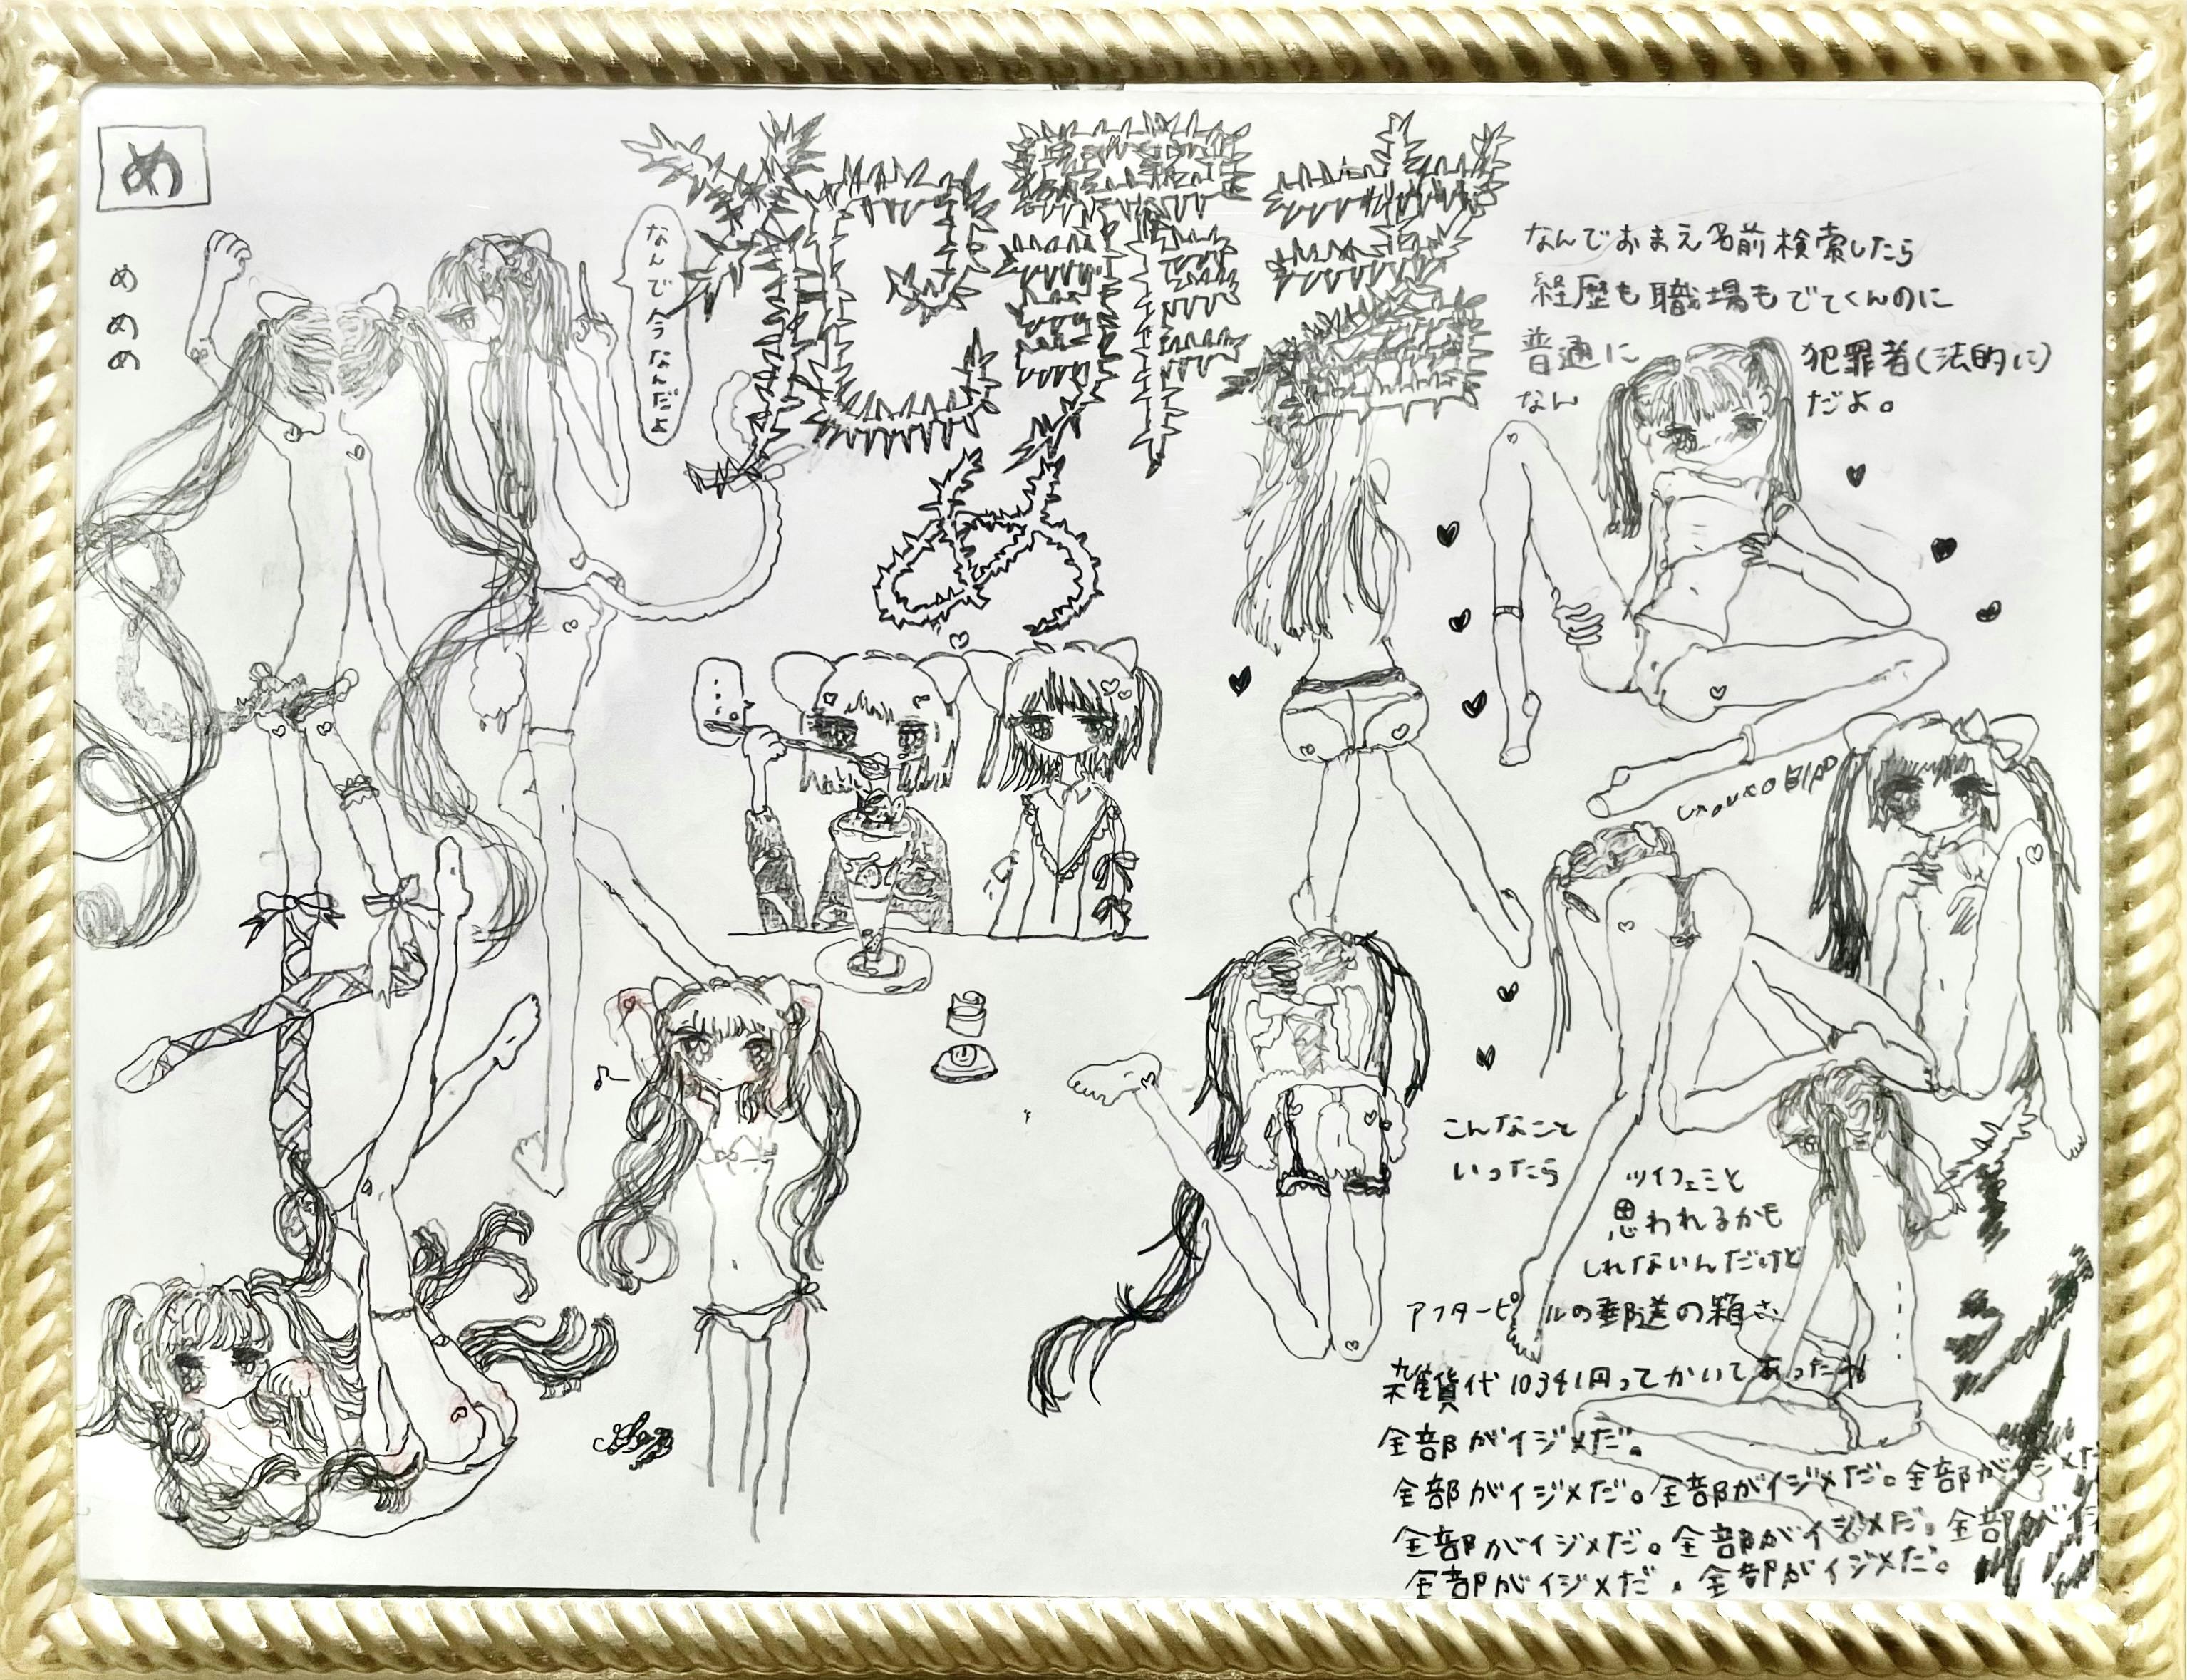 め
め
め
め
なんで今なんだよ
なんでおまえ名前検索したら
経歴も職場もでてくんのに
普通に 犯罪者(法的に)
なん だよ。
こんなこと
いったら
ツイフェミと
思われるかも
しれないんだけど
アフターピルの郵送の箱さ、
雑貨代10341円ってかいてあったね
全部がイジメだ。
全部がイジメだ。全部がイジメだ。全部がイジメだ
全部がイジメだ。全部がイジメだ。全部がイジ
全部がイジメだ。全部がイジメだ。